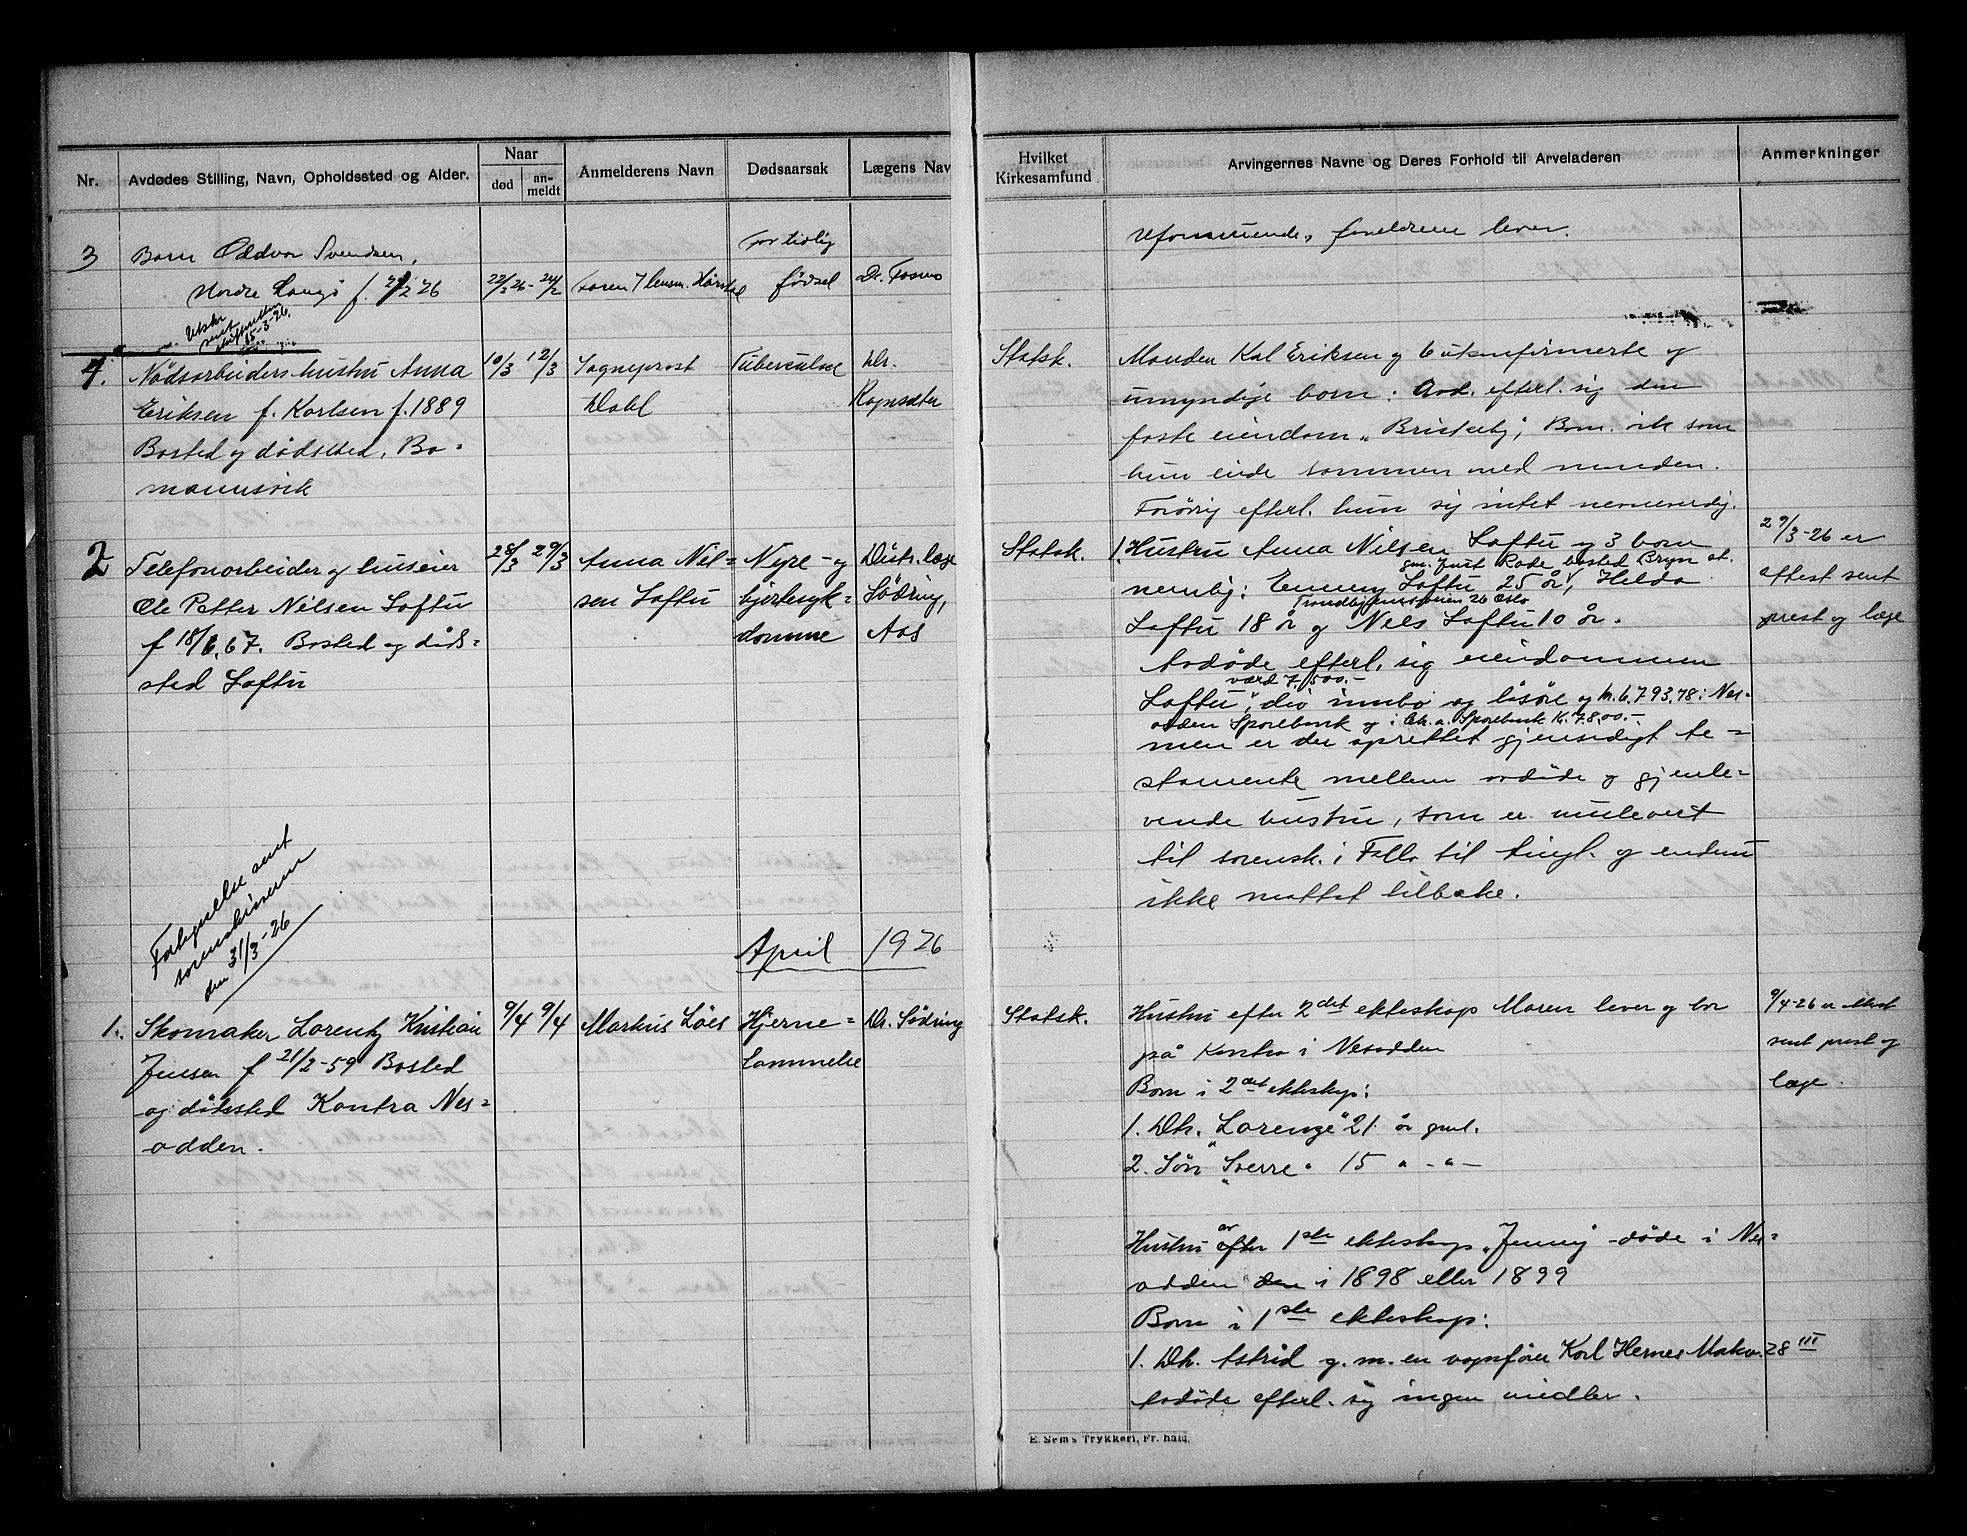 Nr.
Avdødes Stilling, Navn, Opholdssted og Alder.
Naar
død
an-
meldt
Anmelderens Navn
Dødsaarsak
Lægens Nav
Hvilket
Kirkesamfund
Arvingernes Navne og Deres Forhold til Arveladeren
Anmerkninger
3
Barn Oddvar Svendsen,
Nordre f. 2/2 26
22/2 26 - 24/2
for tidlig
fødsel
Dr.
Uformuende, foreldrene lever.
Utskr
sent
skifteretten
15-3-26.
4.
Nødsarbeiders hustru Anna
Eriksen f. Karlsen f. 1889
Bosted og dødsted, Bo-
mannsvik
10/3
12/3
Sogneprest
Dahl
Tuberculose
Dr.
Ragnsæter
Statsk.
Manden Kal Eriksen og 6 ukonfirmerte og
umyndige born. Avd. efterl. sig den
faste eiendom "Briskeby", Bom.vik som
hun eiede sammen med manden.
Forøvrig efterl. hun sig intet nevneverdig.
2
Telefonarbeider og huseier
Ole Petter Nilsen Loftu
f 18/6.67. Bosted og død-
sted Loftu
28/3
29/3
Anna Nil-
sen Loftu
Nyre- og
hjertesyk-
domme
Distr.læge
Södring,
Aas
Statsk.
1. Hustru Anna Nilsen Loftu og 3 born
gm. Rode bosted Bryn st.
nemlig: Emmy Loftu 25 år, Helda
Trondhjemsveien 26 Oslo
Loftu 18 år og Nils Loftu 10 år.
Avdøde efterl. sig eiendommen
værd 7,500.-
Loftu", div innbo og løsøre og kr. 6,793,78 i Nes-
odden Sparebank og i Chr.a. Sparebank Kr. 7800.-
men er der oprettet gjensidigt te-
stamente mellem avdøde og gjenle-
vende hustru, som er innlevert
til sorensk. i Follo til tingl. og endnu
ikke mottat tilbake.
29/3-26 er
attest sent
prest og læge
Følgeseddel sent
sorenskriveren
den 31/3-26
April 1926
1.
Skomaker Lorentz Kristian
Jensen f 21/2-59 Bosted
og dødssted Kontra Nes-
odden.
9/4
9/4
Markus Löes
Hjerne-
Lammelse
Dr. Södring
Statsk.
Hustru efter 2det ekteskap Maren lever og bor
på Kontra i Nesodden
Born i 2det ekteskap:
1. Dtr. "Lorenze" 21 år gml.
2. Søn "Sverre" 15 " - " -
Hustru av efter 1ste ekteskap "Jenny" døde i Nes-
odden den i 1898 eller 1899
Born i 1ste ekteskap:
1. Dtr. Astrid g. m. en vognfører Karl Hernes Markv. 28 III
Avdøde efterl. sig ingen midler.
9/4-26 er attest
sent prest og
læge.
E. Sem's Trykkeri, Fr. hald.